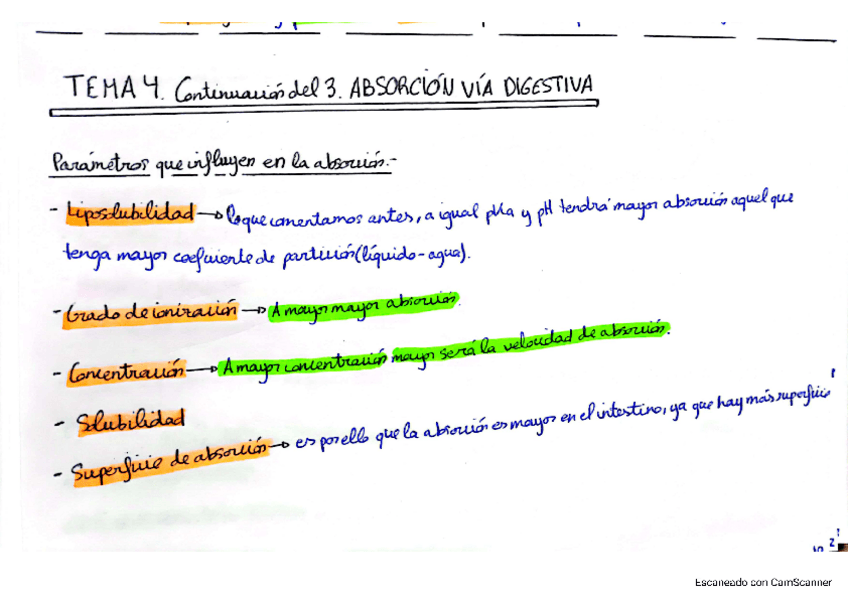 TEMA 4. Continuación del 3. ABSORCIÓN VÍA DIGESTIVA
Parámetros que influyen en la absorción.-
- Liposolubilidad → Lo que comentamos antes, a igual pKa y pH tendrá mayor absorción aquel que
tenga mayor coeficiente de partición (líquido-agua).
- Grado de ionización → A mayor mayor absorción.
- Concentración → A mayor concentración mayor será la velocidad de absorción.
- Solubilidad
- Superficie de absorción → es por ello que la absorción es mayor en el intestino, ya que hay más superficie
Escaneado con CamScanner